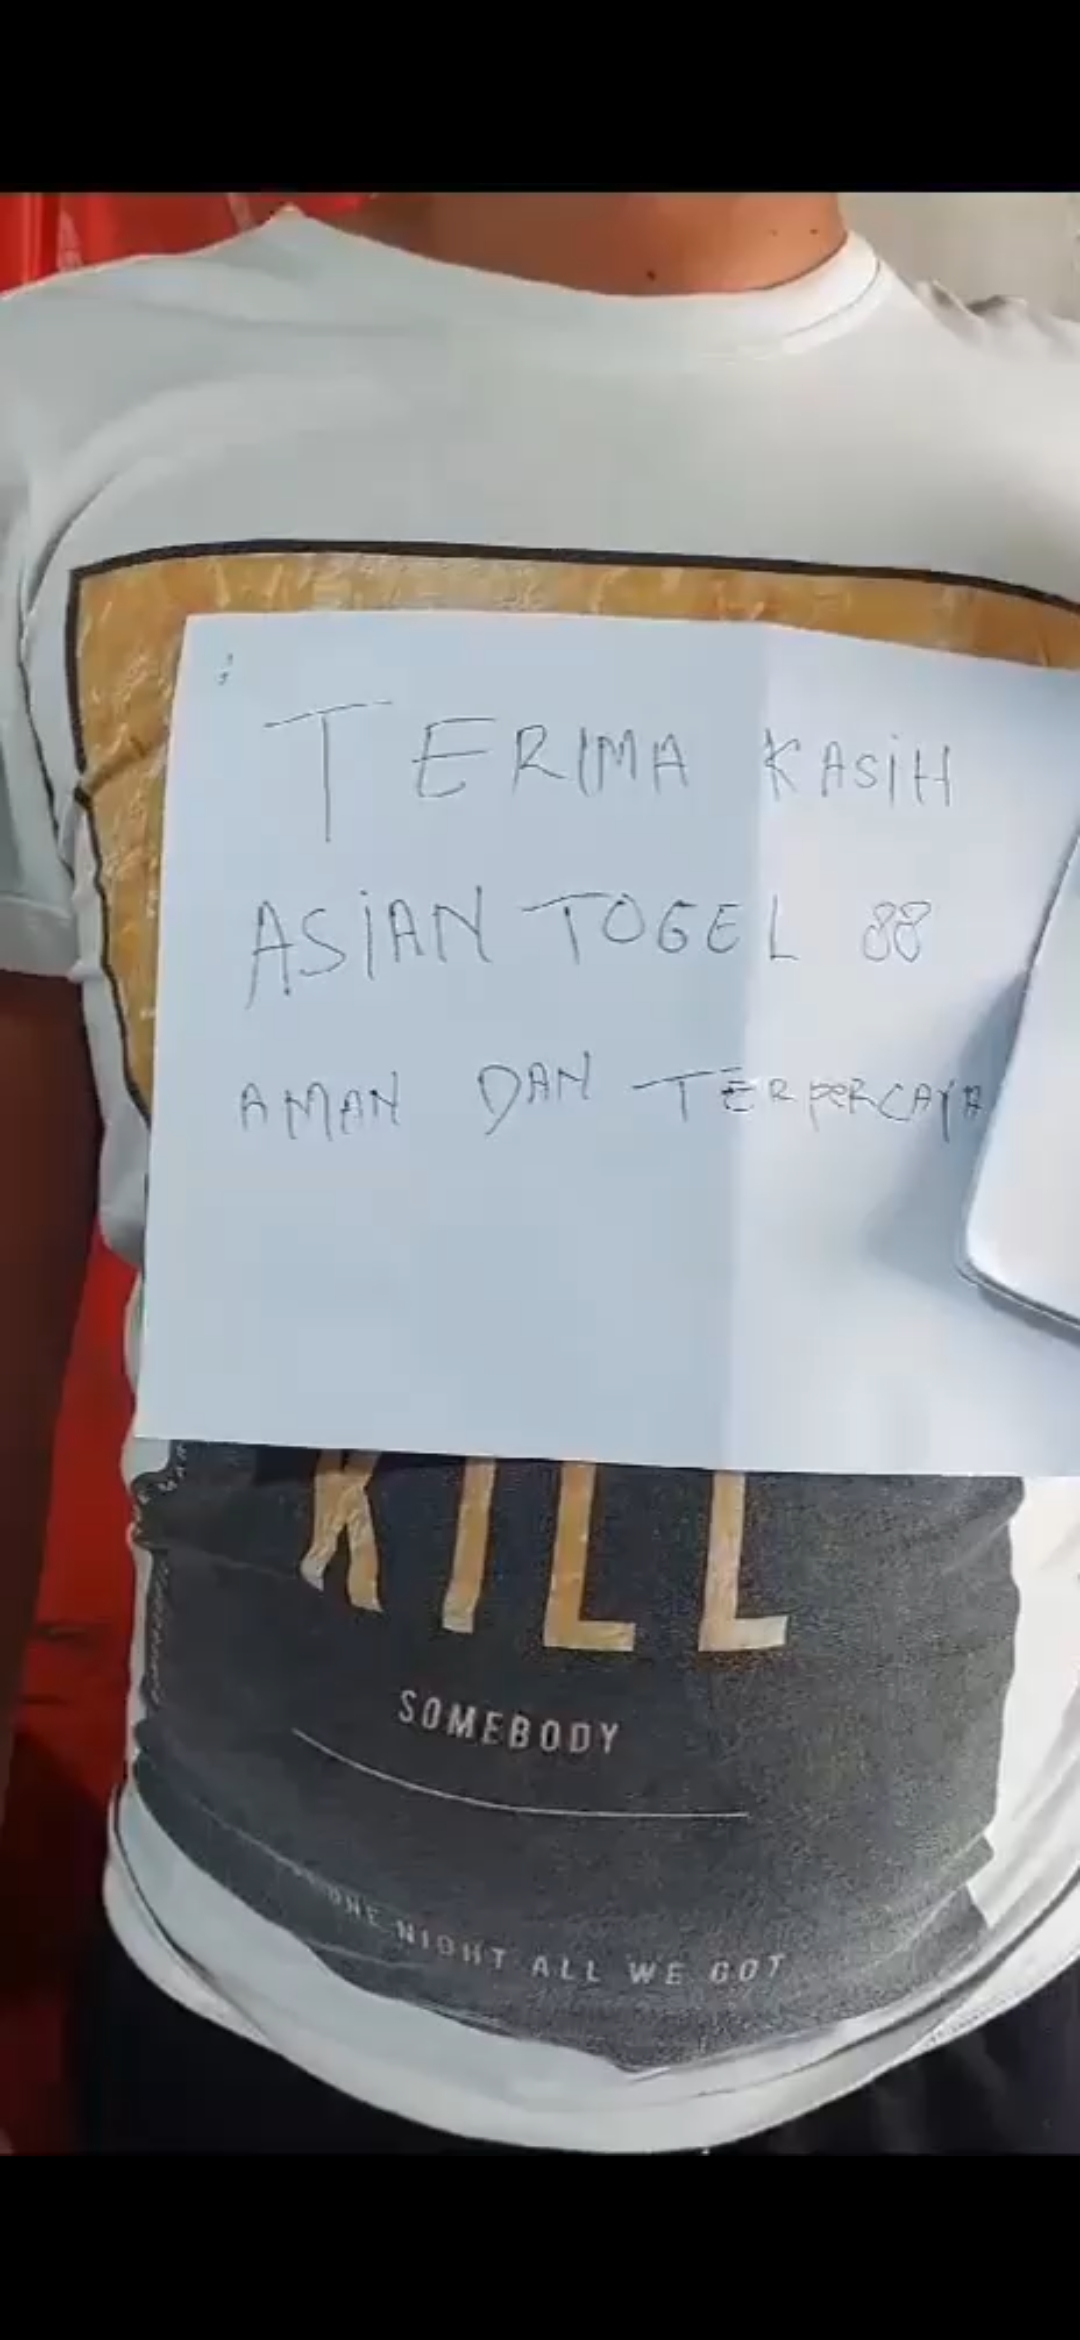 TERIMA KASIH
ASIAN TOGEL 88
AMAN DAN TERPERCAYA
KILL
SOMEBODY
ONE NIGHT ALL WE GOT